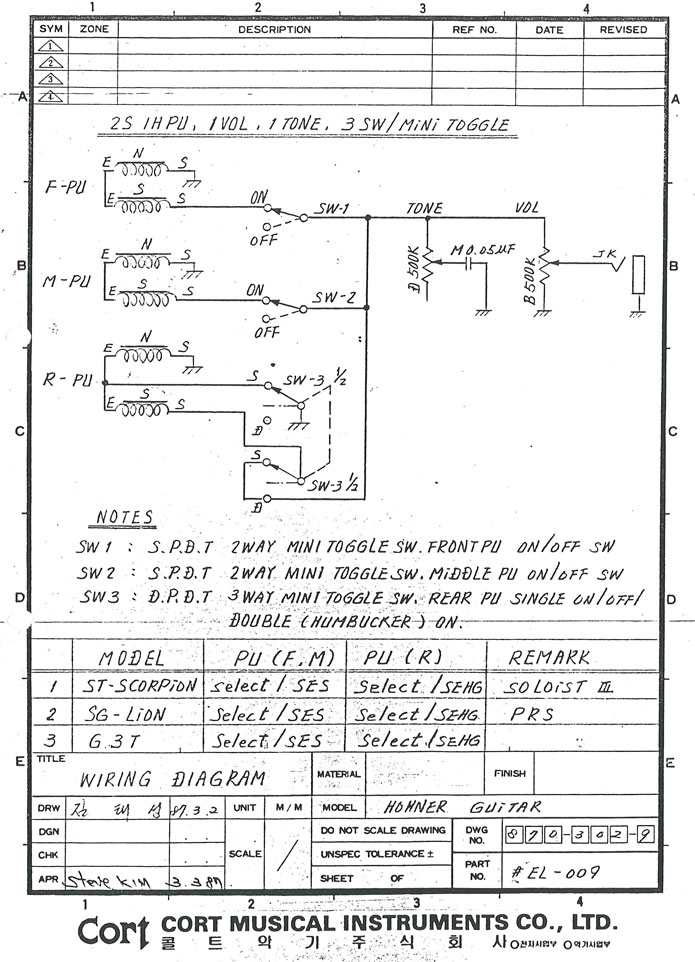 1 2 3 4
SYM ZONE DESCRIPTION REF NO. DATE REVISED
1
2
3
4
A A
2S 1H PU, 1 VOL, 1 TONE, 3 SW/MiNi TOGGLE
F-PU E N S
E S S ON SW-1 TONE VOL
OFF
B B
M-PU E N S D 500K M 0.05µF B 500K JK
E S S ON SW-2
OFF
R-PU E N S
E S S S SW-3 1/2
C C
D
S SW-3 1/2
D
NOTES
SW 1 : S.P.D.T 2WAY MINI TOGGLE SW. FRONT PU ON/OFF SW
SW 2 : S.P.D.T 2WAY MINI TOGGLE SW. MiDDLE PU ON/OFF SW
D SW3 : D.P.D.T 3WAY MINI TOGGLE SW. REAR PU SINGLE ON/OFF/ D
DOUBLE (HUMBUCKER) ON.
MODEL PU (F, M) PU (R) REMARK
1 ST-SCORPiON select/SES Select/SEHG SOLOiST III
2 SG-LiON Select/SES Select/SEHG PRS
3 G.3T Select/SES Select/SEHG
E E
TITLE WIRING DIAGRAM MATERIAL FINISH
DRW 87.3.2 UNIT M/M MODEL HOHNER GUiTAR
DGN SCALE DO NOT SCALE DRAWING DWG NO. 870-302-9
CHK UNSPEC TOLERANCE ±
APR Steve KIM 3.3.87 SHEET OF PART NO. #EL-009
1 2 3 4
Cort CORT MUSICAL INSTRUMENTS CO., LTD.
콜트악기주식회사 ○전자사업부 ○악기사업부